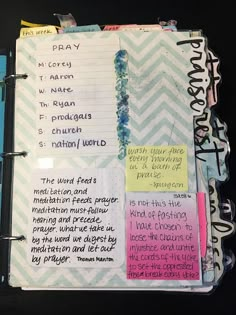 this week
PRAY
M: Corey
T: Aaron
W: Nate
Th: Ryan
F: prodigals
S: church
S: nation/world
The Word feeds
meditation, and
meditation feeds prayer.
meditation must follow
hearing and precede
prayer. what we take in
by the word we digest by
meditation and let out
by prayer. Thomas Manton
wash your face
every morning
in a bath of
praise.
-spurgeon
is not this the
kind of fasting
I have chosen: to
loose the chains of
injustice, and untie
the cords of the yoke
to set the oppressed
free & break every yoke?
praise
rest